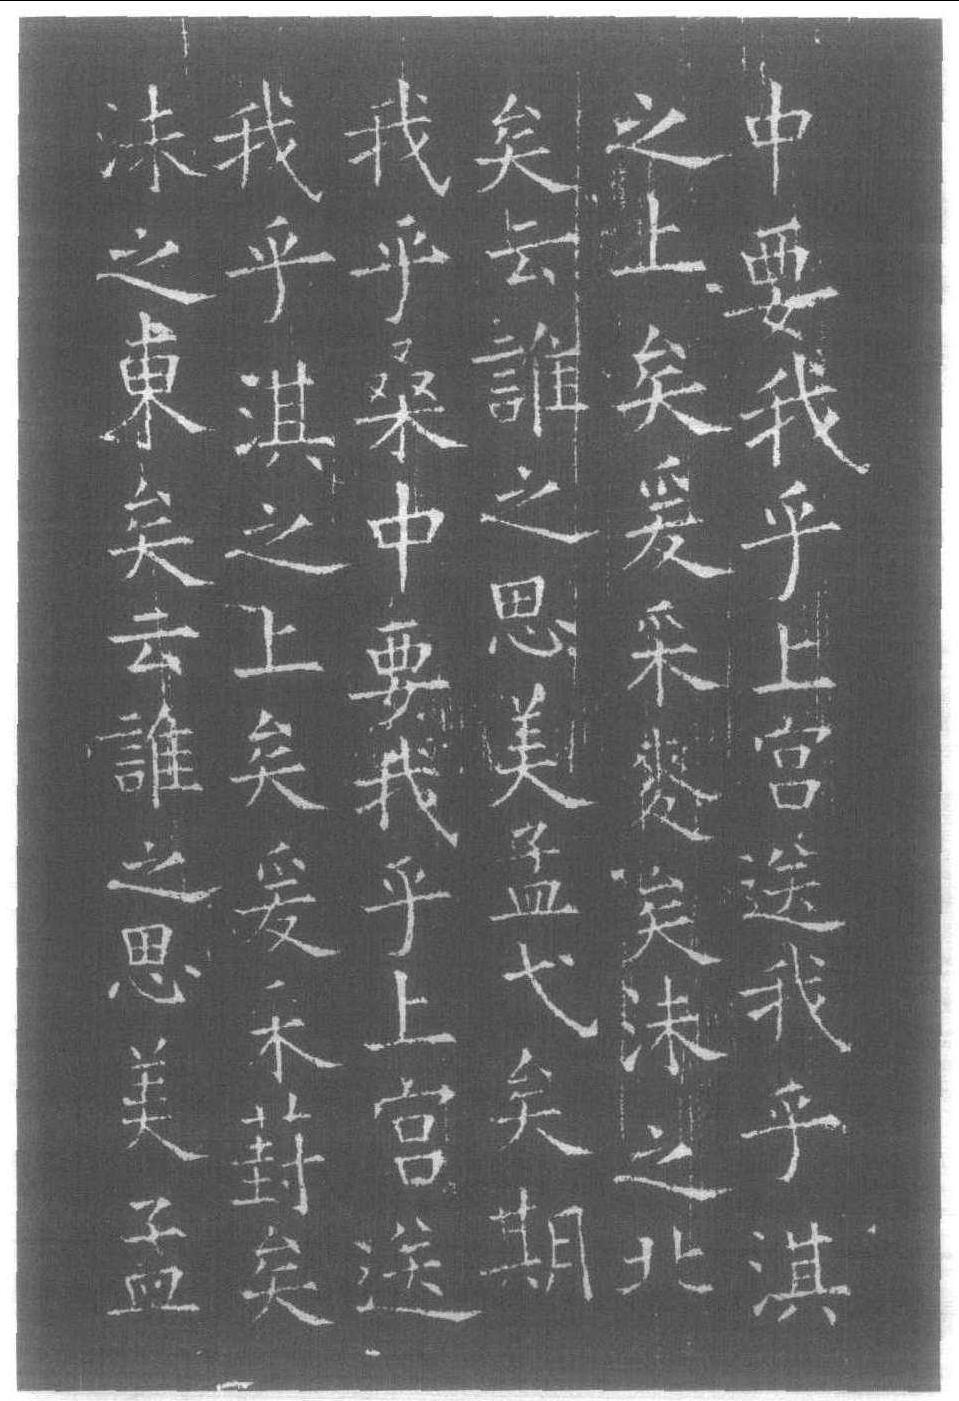 中要我乎上宮送我乎淇
之上矣爰采麥矣沬之北
矣云誰之思美孟弋矣期
我乎桑中要我乎上宮送
我乎淇之上矣爰采葑矣
沬之東矣云誰之思美孟